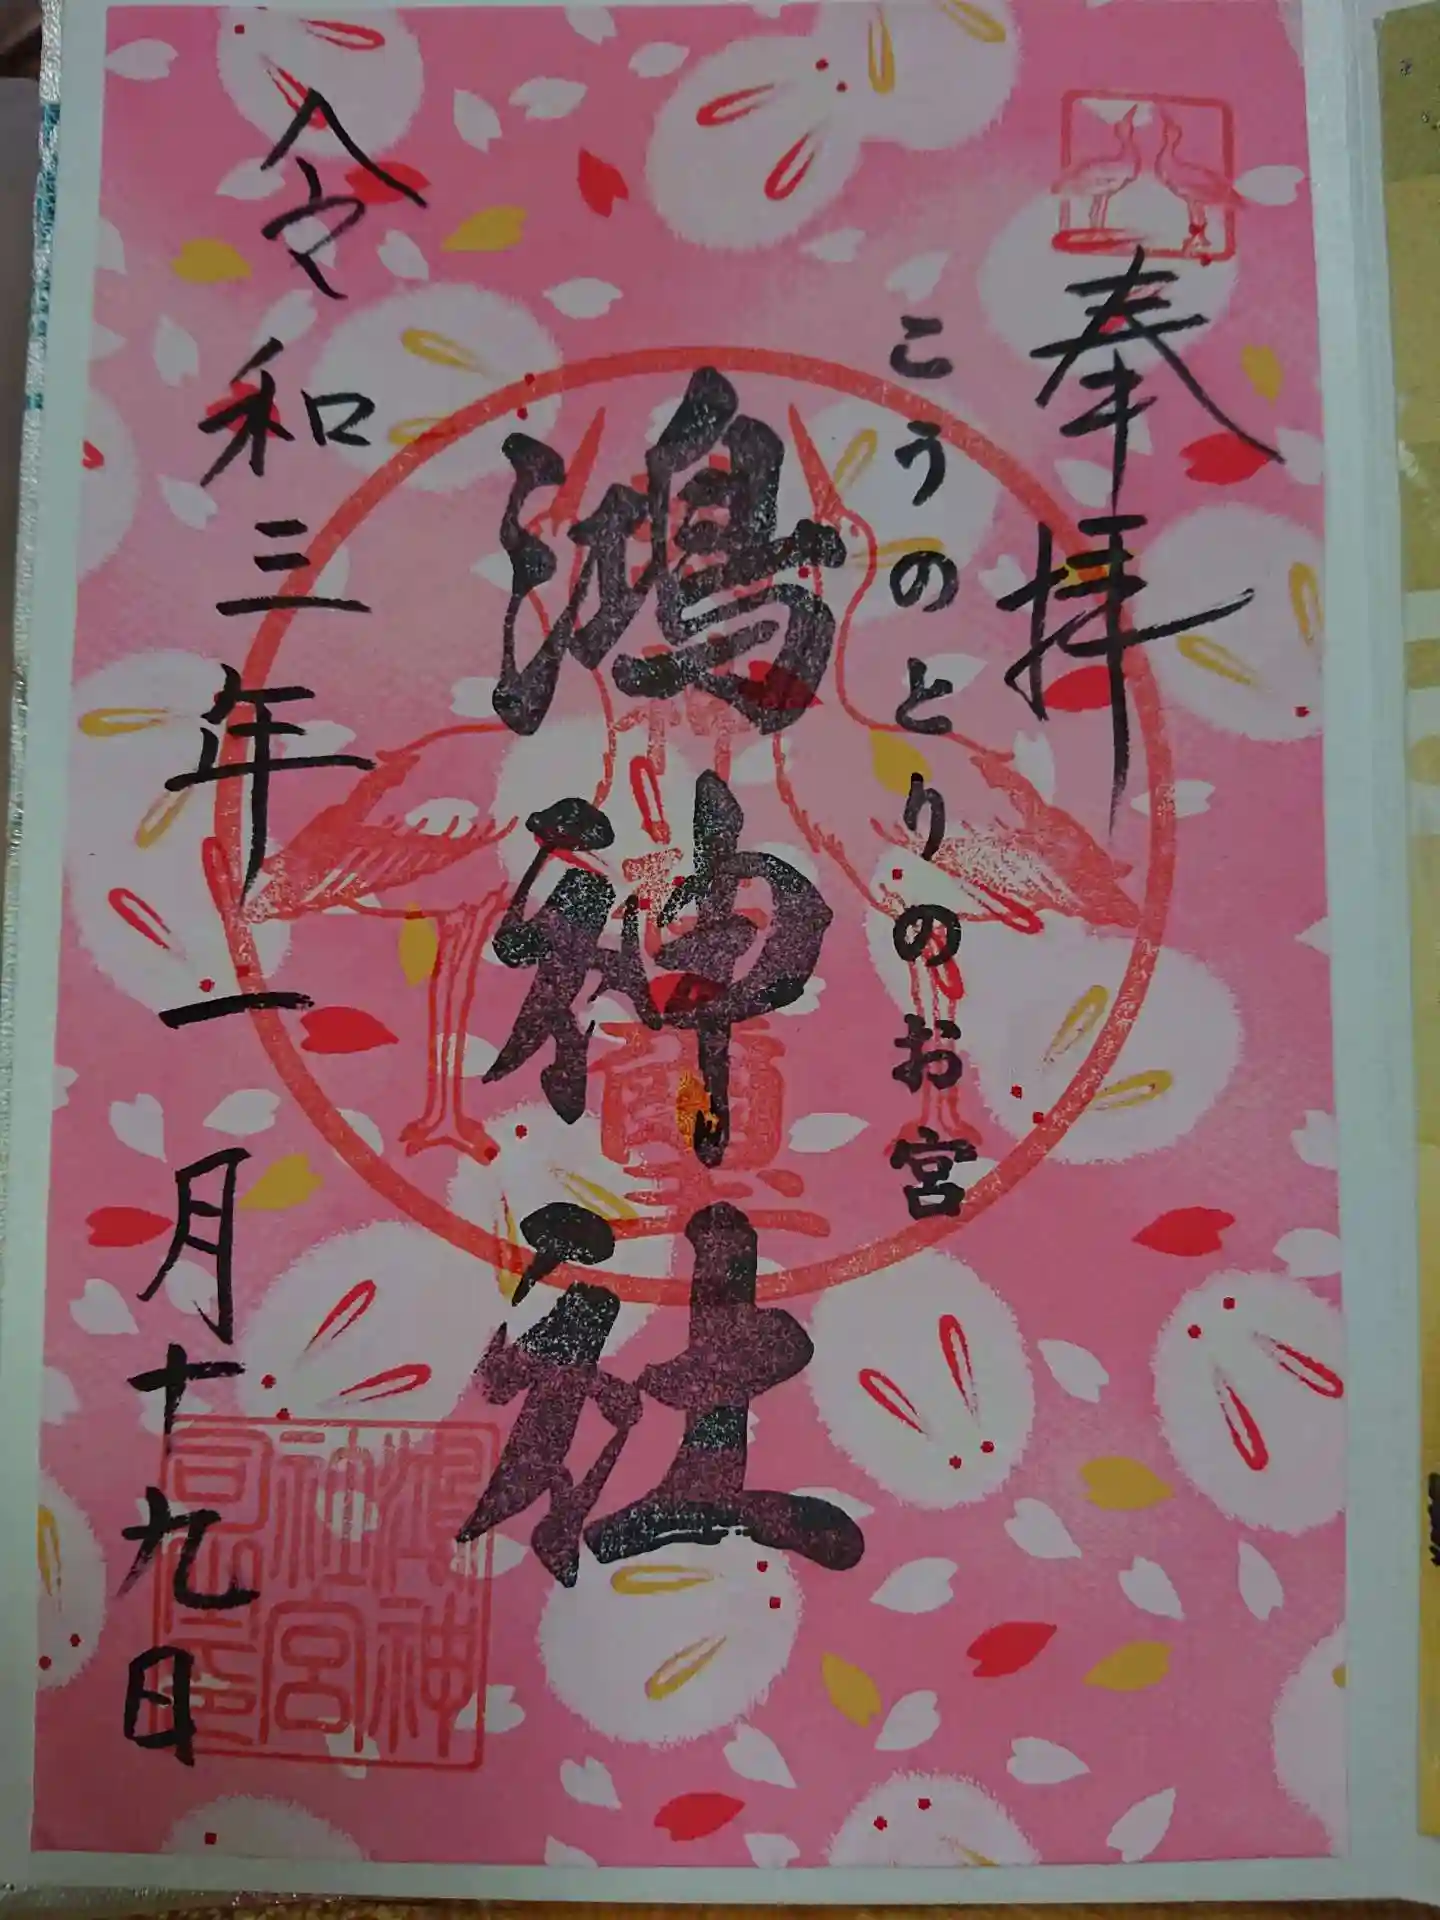 奉拝
こうのとりのお宮
鴻神社
令和三年一月十九日
鴻神
社宮
司之印